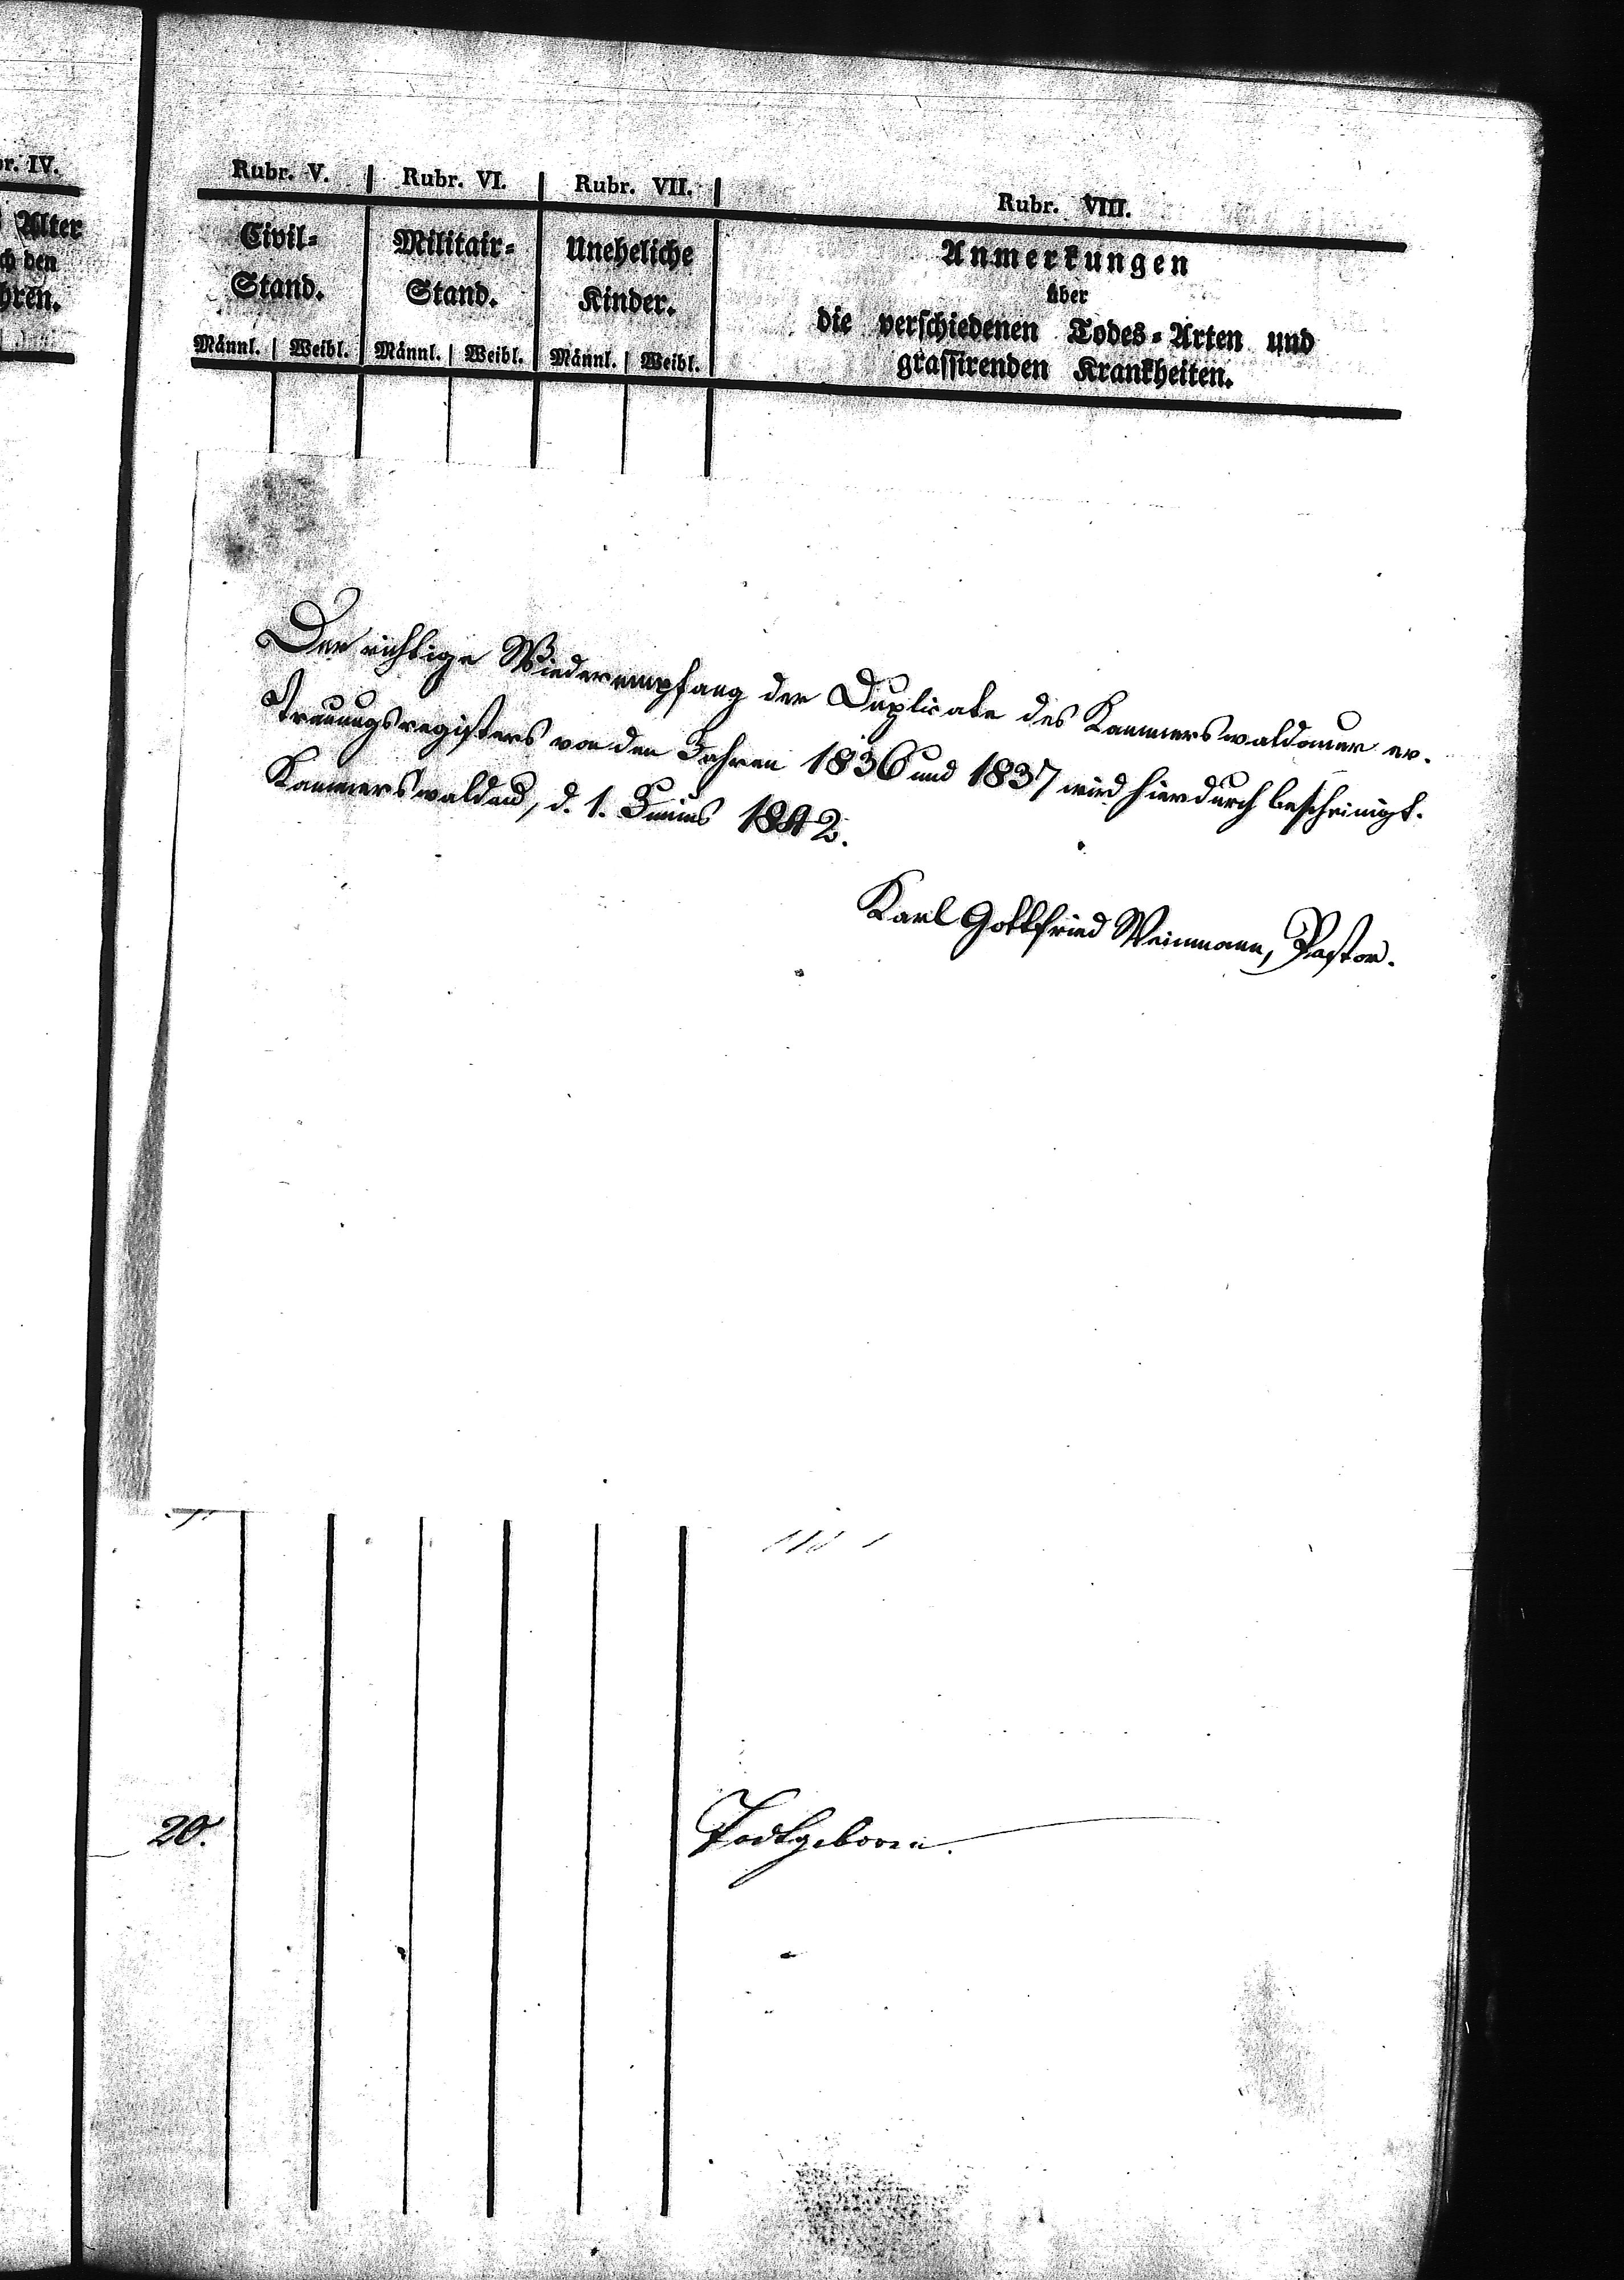 r. IV.
Alter
ch den
hren.
Rubr. V. Rubr. VI. Rubr. VII. Rubr. VIII.
Civil= Stand. Militair= Stand. Uneheliche Kinder. Anmerkungen
über
die verschiedenen Todes=Arten und
grassirenden Krankheiten.
Männl. Weibl. Männl. Weibl. Männl. Weibl.
Der richtige Wiederempfang der Duplicate des Kammerswaldauer ev.
Trauungsregisters von den Jahren 1836 und 1837 wird hierdurch bescheinigt.
Kammerswaldau, d. 1. Junius 1842.
Karl Gottfried Weinmann, Pastor.
20. Todtgeboren.